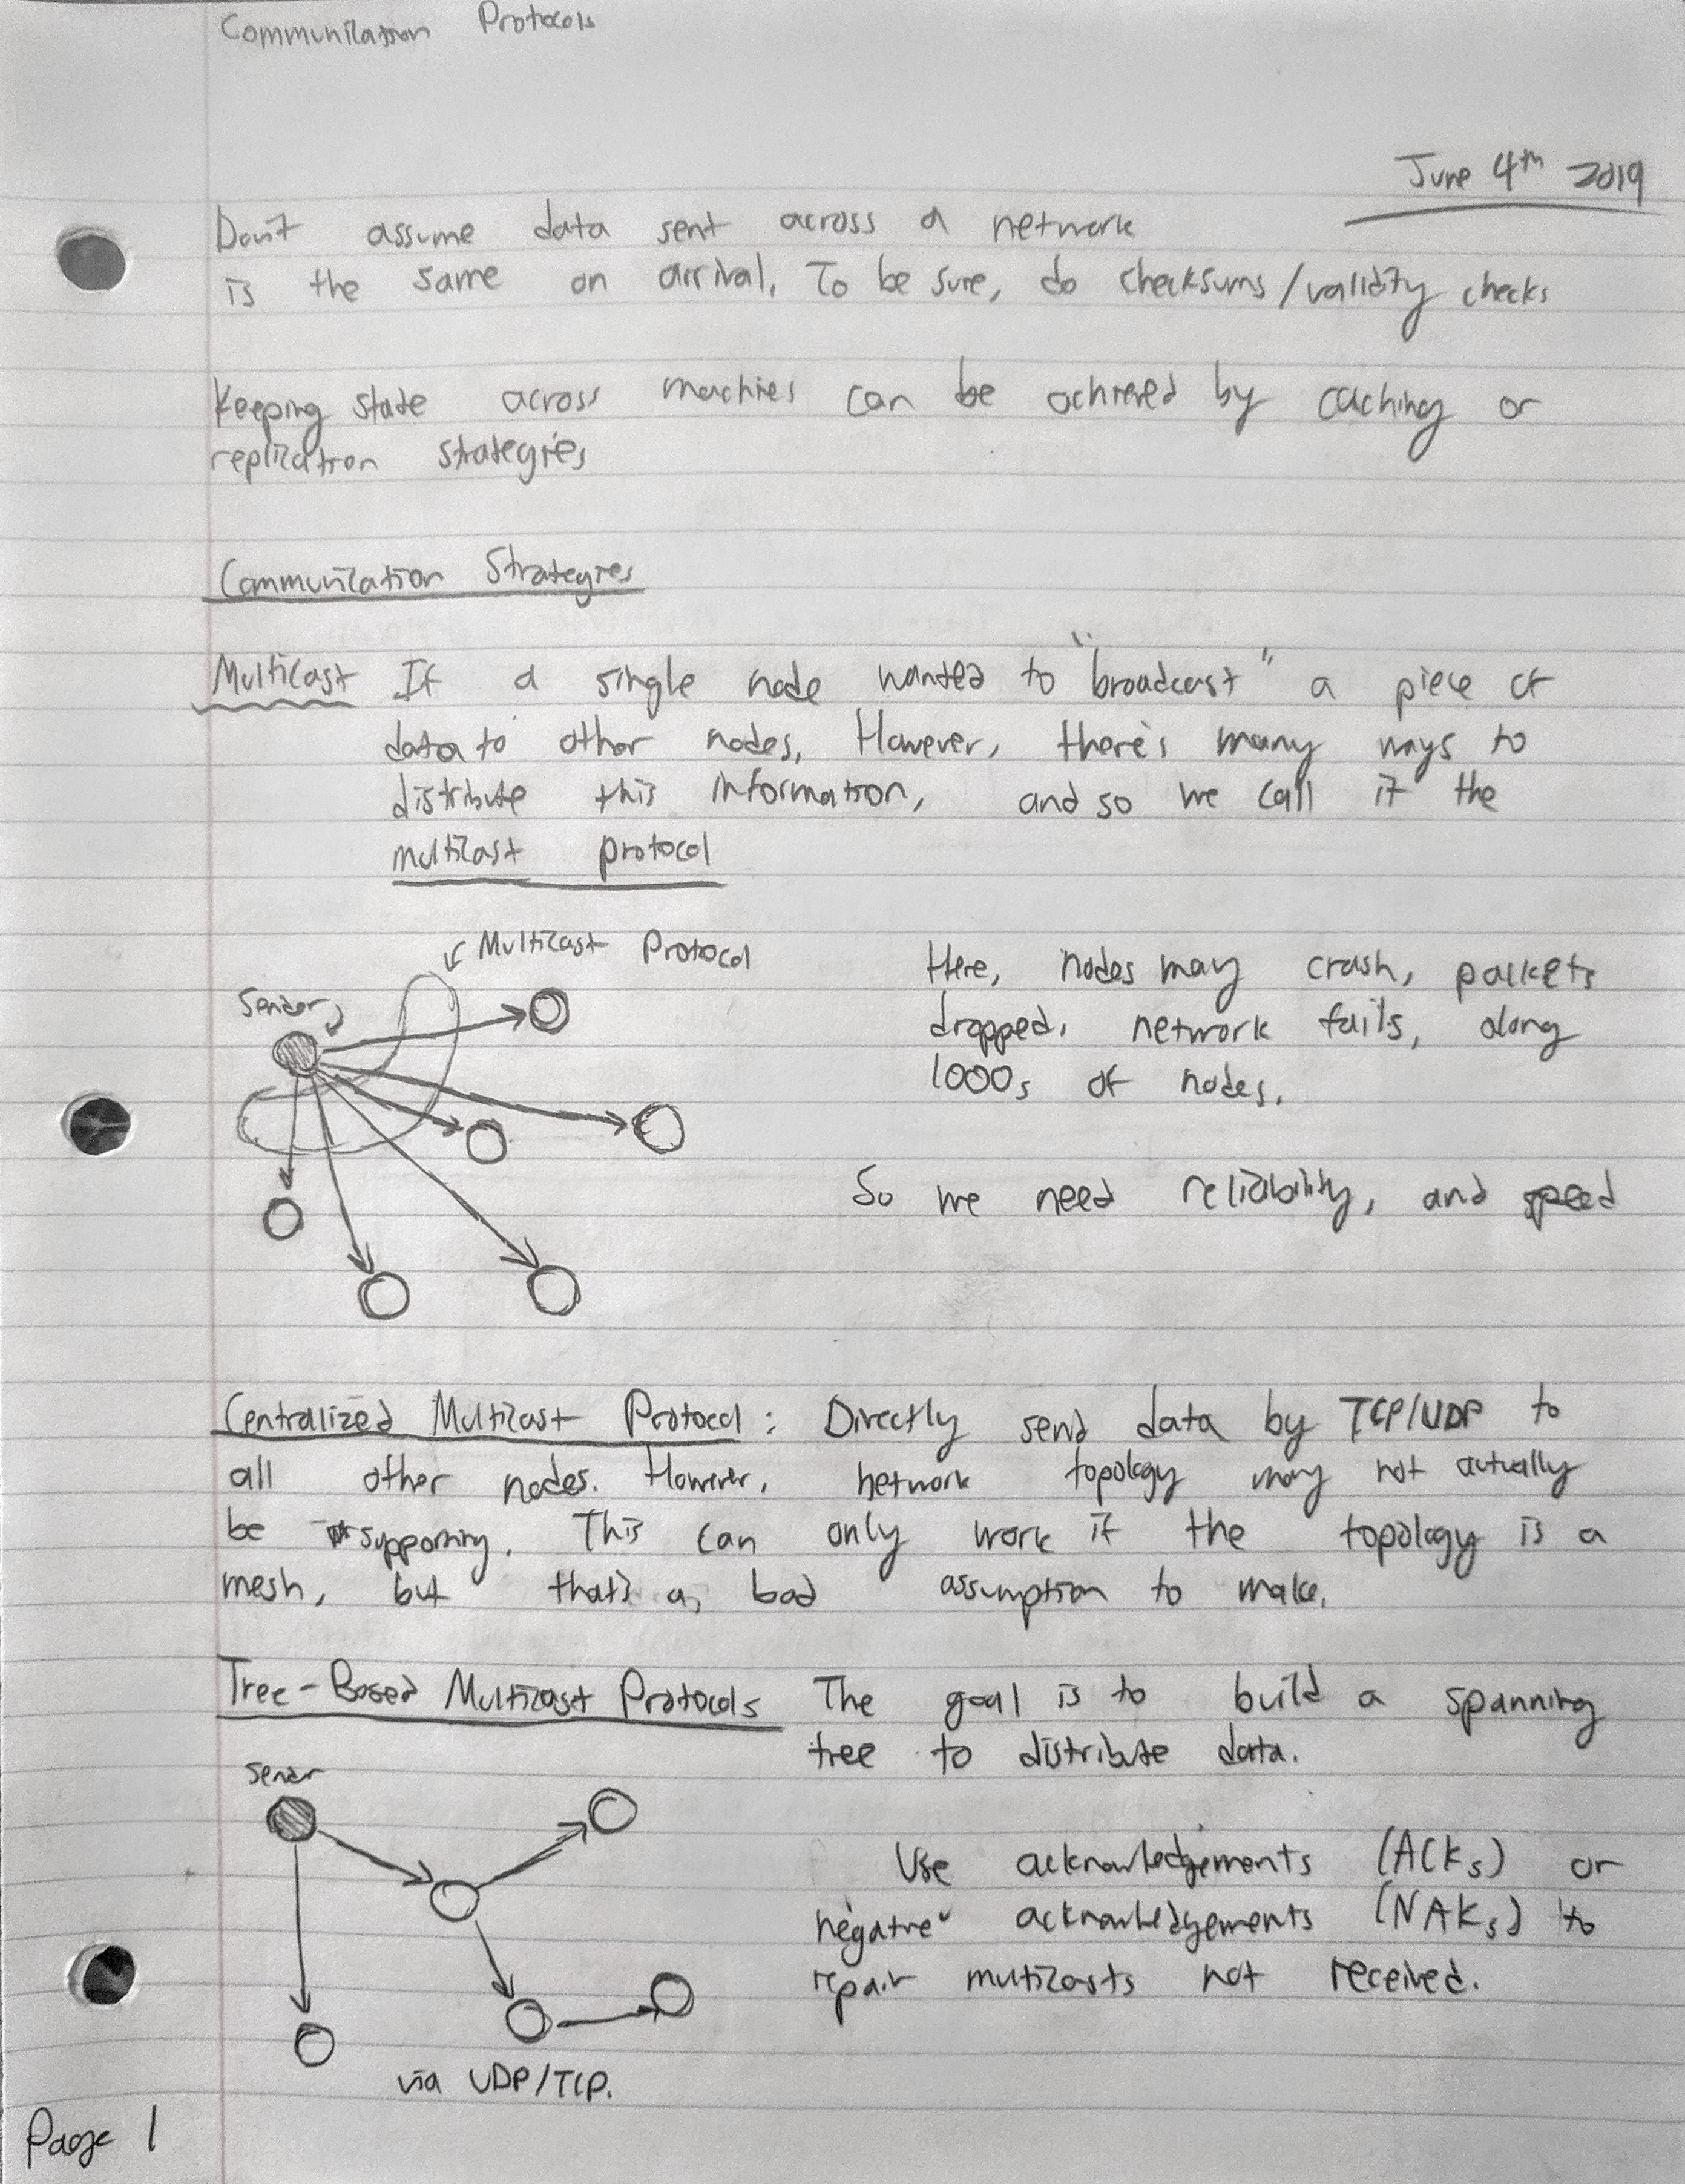 Communication Protocols
June 4th 2019
Don't assume data sent across a network
is the same on arrival. To be sure, do checksums/validity checks
Keeping state across machines can be achieved by caching or
replication strategies
Communication Strategies
Multicast If a single node wanted to "broadcast" a piece of
data to other nodes. However, there's many ways to
distribute this information, and so we call it the
multicast protocol
Multicast Protocol
Sender
Here, nodes may crash, packets
dropped, network fails, along
1000s of nodes.
So we need reliability, and speed
Centralized Multicast Protocol: Directly send data by TCP/UDP to
all other nodes. However, network topology may not actually
be supporting. This can only work if the topology is a
mesh, but that's a bad assumption to make.
Tree-Based Multicast Protocols The goal is to build a spanning
tree to distribute data.
sender
Use acknowledgements (ACKs) or
negative acknowledgements (NAKs) to
repair multicasts not received.
via UDP/TCP.
Page 1